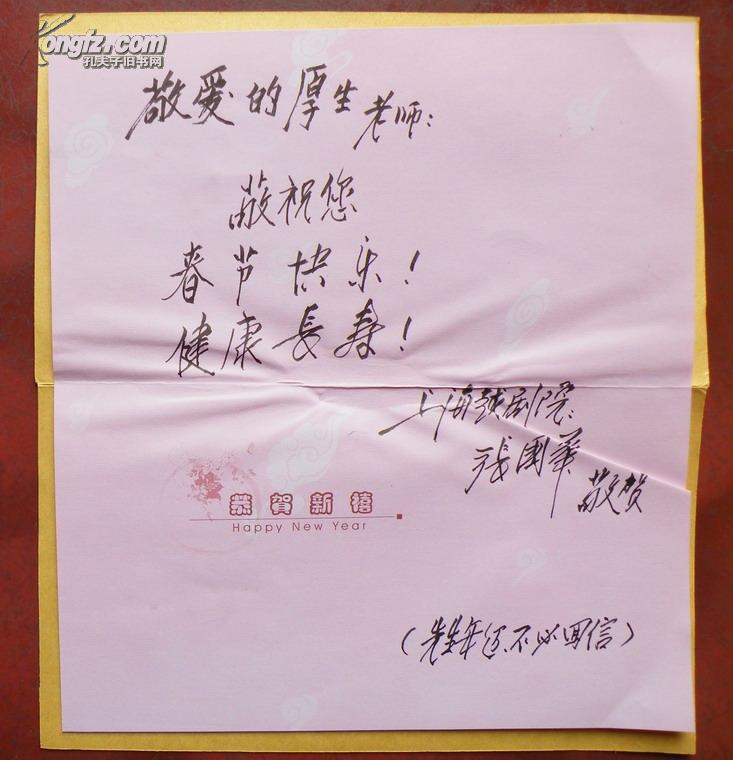 Kongfz.com
孔夫子旧书网
敬爱的厚生老师:
敬祝您
春节快乐!
健康長寿!
上海越剧院
張國華
敬贺
恭賀新禧
Happy New Year
(先生年迈不必回信)